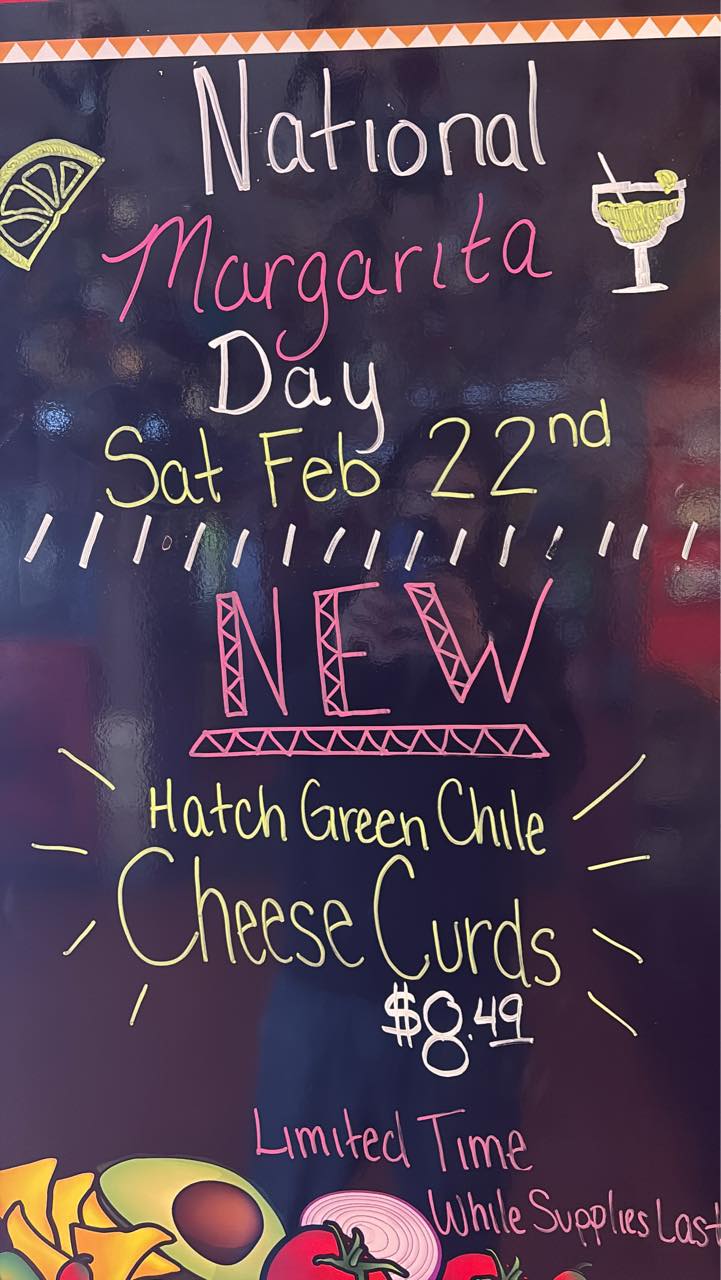 National
Margarita
Day
Sat Feb 22nd
NEW
Hatch Green Chile
Cheese Curds
$8.49
Limited Time
While Supplies Last